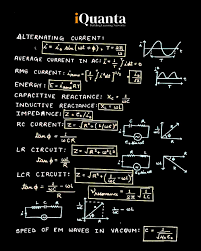 iQuanta
ALTERNATING CURRENT:
i = i₀ sin(ωt + φ), T = 2π/ω
AVERAGE CURRENT IN AC: ī = 1/T ∫ i dt = 0
RMS CURRENT:
ENERGY: E = i²rms RT
CAPACITIVE REACTANCE: Xc = 1/ωC
INDUCTIVE REACTANCE: XL = ωL
IMPEDANCE: Z = e₀/i₀
RC CURRENT: Z = √R² + (1/ωC)²
tan φ = 1/ωCR
LR CIRCUIT: Z = √R² + ω²L²
tan φ = ωL/R
LCR CIRCUIT: Z = √R² + (1/ωC - ωL)²
tan φ = (1/ωC - ωL)/R
νresonance = 1/2π √1/LC
SPEED OF EM WAVES IN VACUUM: C = 1/√μ₀ε₀